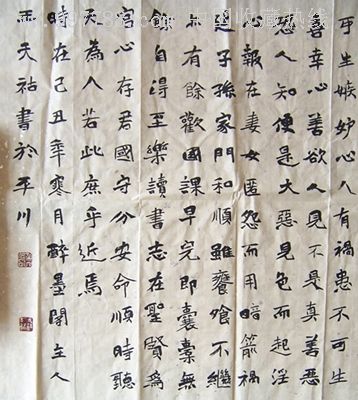 中国收藏热线
可生嫉妒心人有禍患不可生
喜幸心善欲人見不是真善惡
恐人知便是大惡見色而起淫
報在妻女匿怨而用暗箭禍
延子孫家門和順雖饔飧不繼
亦有餘歡國課早完即囊橐無
餘自得至樂讀書志在聖賢為
官心存君國守分安命順時聽
為人若此庶乎近焉
時在己丑年寒月醉墨閣主人
王天祜書於平川